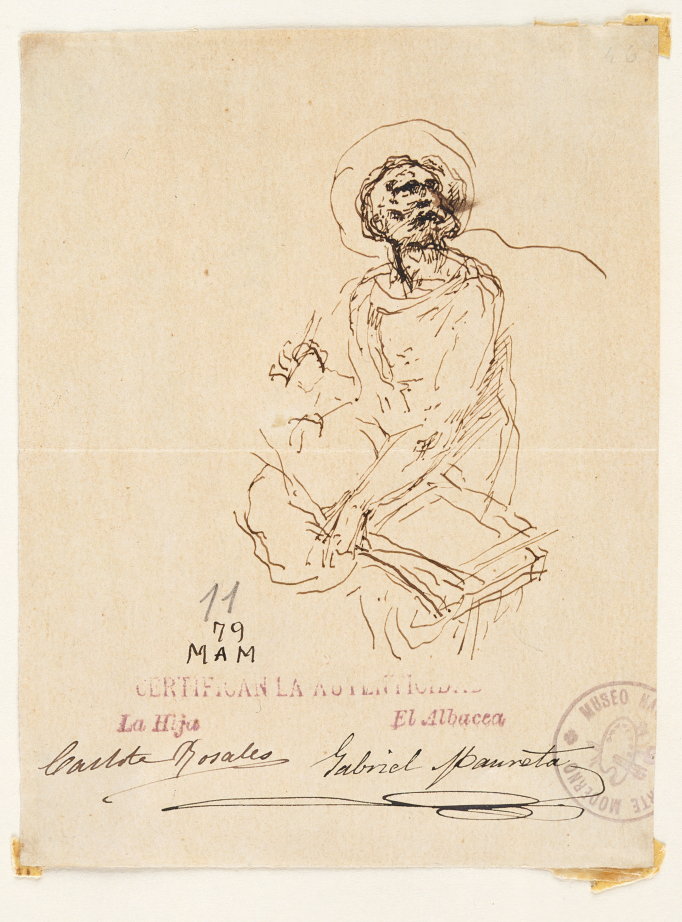 46
11
79
MAM
CERTIFICAN LA AUTENTICIDAD
La Hija
El Albacea
Carlota Rosales
Gabriel Maureta
MUSEO NA
ARTE MODERNO